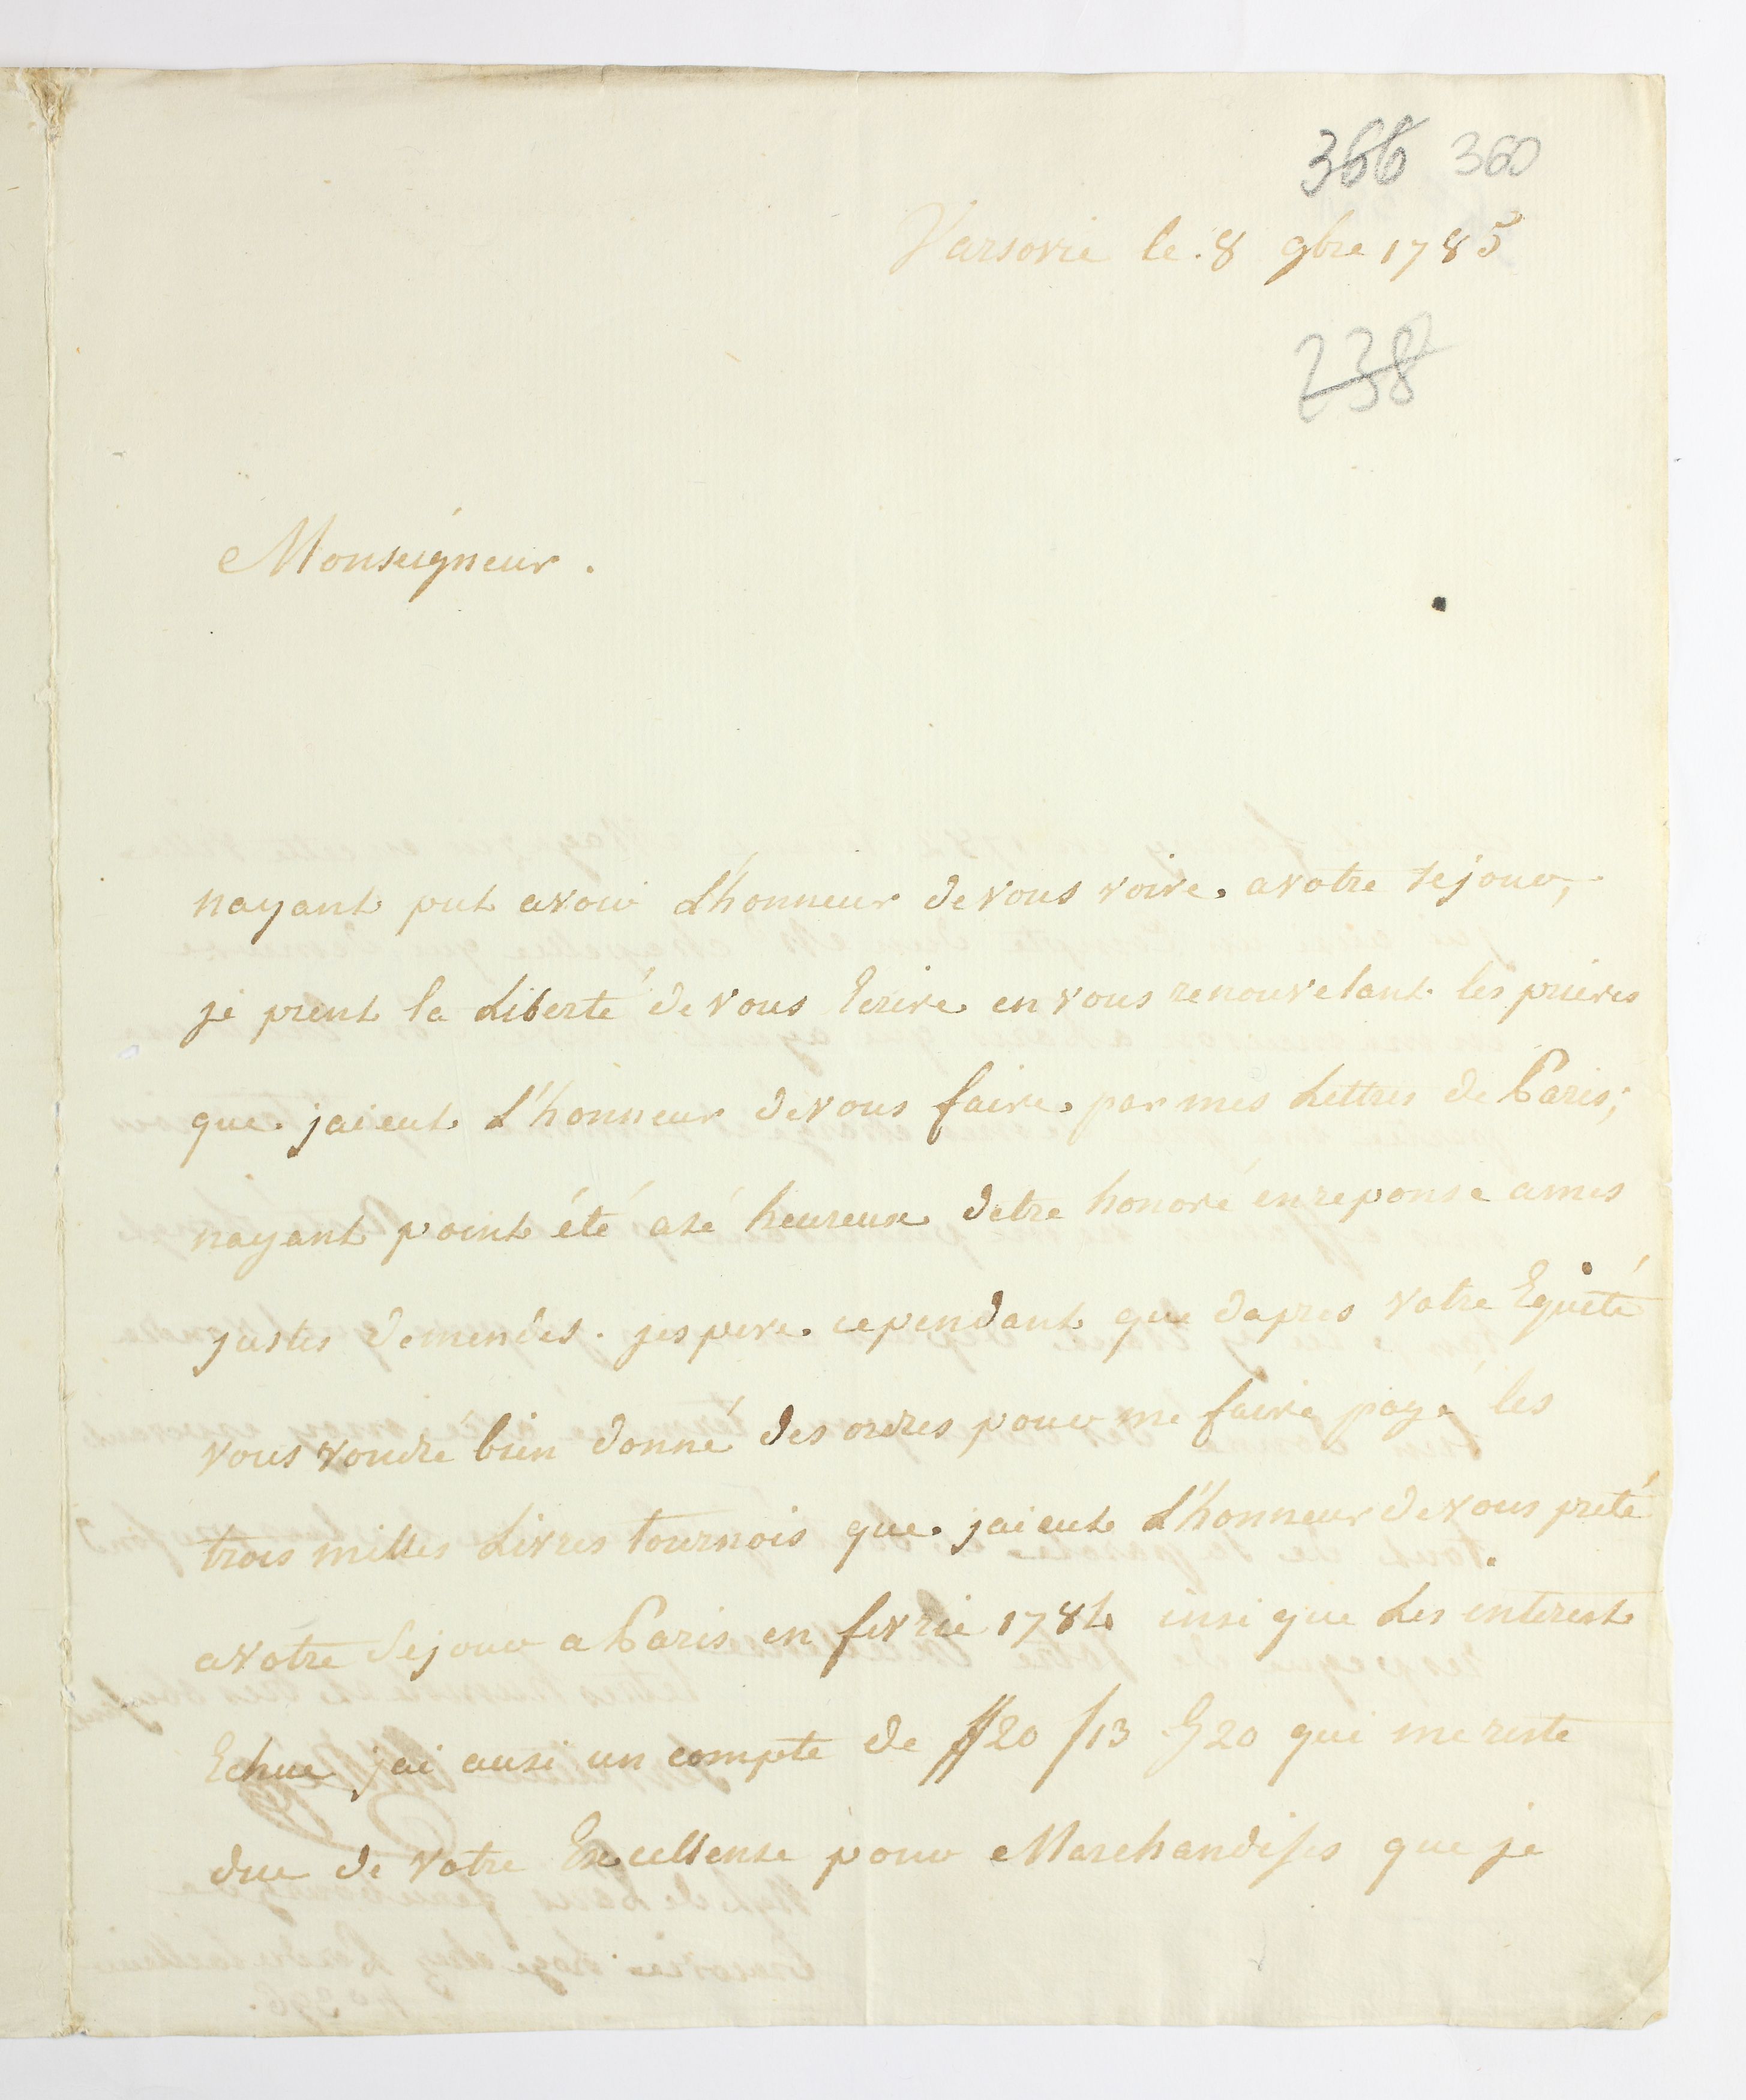 366 360
Varsovie le. 8 9bre 1785
238
Monseigneur.
nayant put avoir L'honneur de vous voire. avotre sejour,
je prent la Liberté de vous Ecrire en vous renouvelant les prieres
que. jaieut L'honneur de vous faire. par mes Lettres de Paris;
nayant point été asé heureux detre honoré en reponse ames
justes demendes. jespere. cependant que dapres votre Equité
vous voudré bien donné des ordres pour me faire payé les
trois milles Livres tournois que. jaieut L'honneur de vous preté
avotre Sejour a Paris en fevrié 1784 insi que Les interest
Echue jai ausi un compte de #20 f13 G20 qui me reste
due de votre Excellense pour Marchandises que je